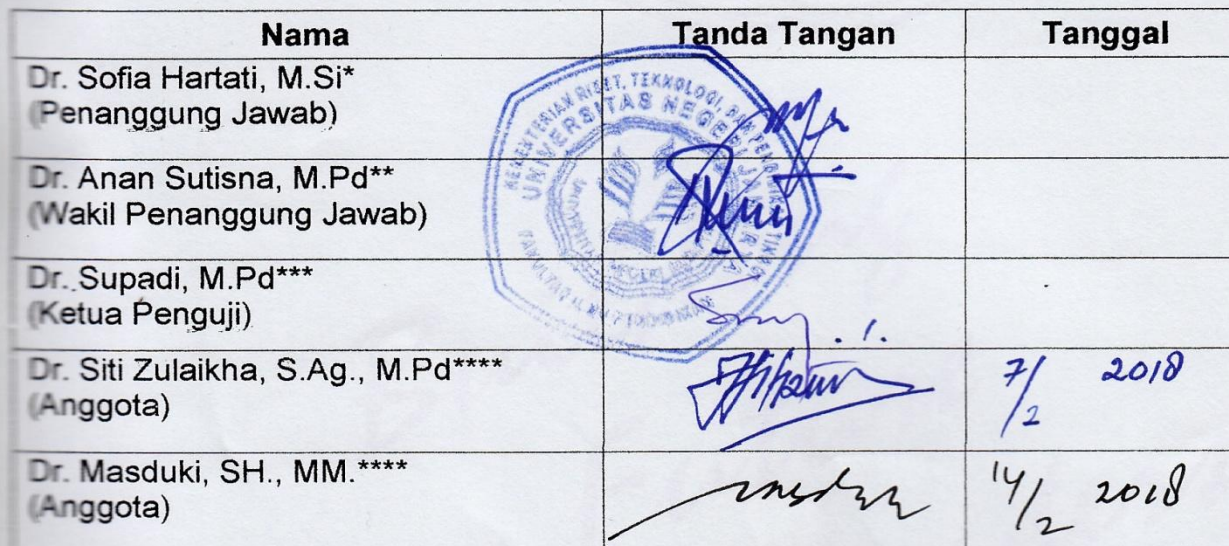 Nama Tanda Tangan Tanggal
Dr. Sofia Hartati, M.Si*
(Penanggung Jawab)
Dr. Anan Sutisna, M.Pd**
(Wakil Penanggung Jawab)
Dr. Supadi, M.Pd***
(Ketua Penguji)
Dr. Siti Zulaikha, S.Ag., M.Pd****
(Anggota)
7/2 2018
Dr. Masduki, SH., MM.****
(Anggota)
14/2 2018
KEMENTERIAN RISET, TEKNOLOGI, DAN PENDIDIKAN
UNIVERSITAS NEGERI JAKARTA